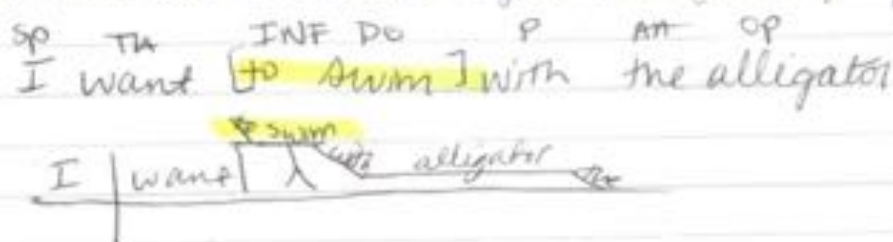 SP TVA INF DO P AA OP
I want [to swim] with the alligator
to swim
I want with alligator the